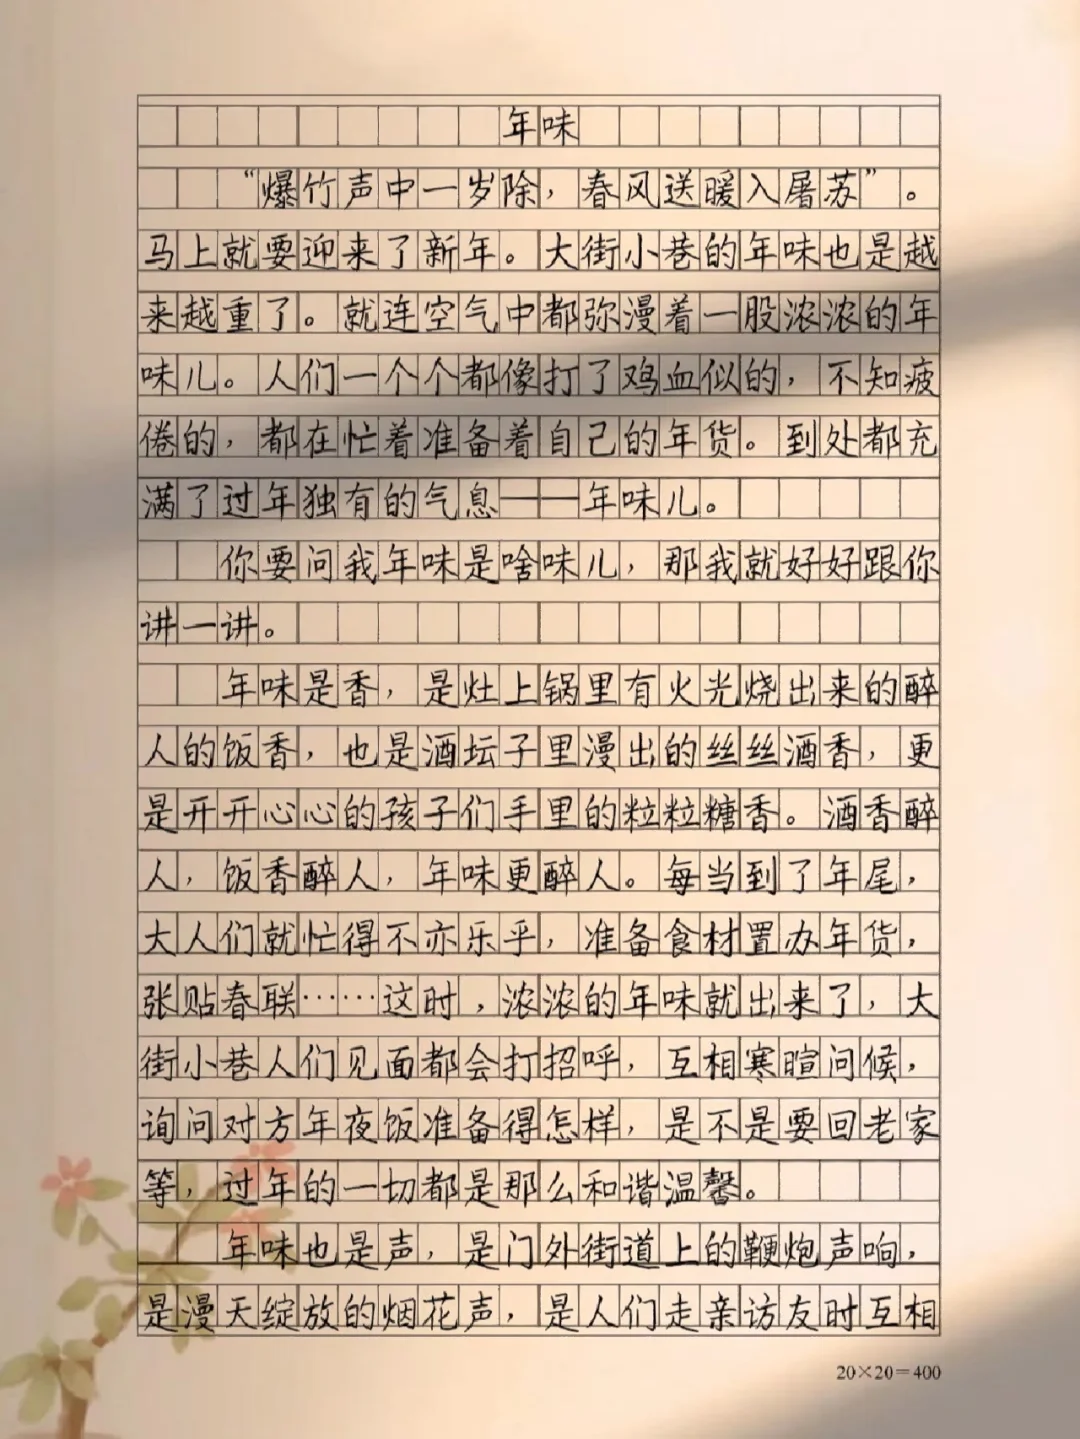 年味
“爆竹声中一岁除，春风送暖入屠苏”。
马上就要迎来了新年。大街小巷的年味也是越
来越重了。就连空气中都弥漫着一股浓浓的年
味儿。人们一个个都像打了鸡血似的，不知疲
倦的，都在忙着准备着自己的年货。到处都充
满了过年独有的气息——年味儿。
你要问我年味是啥味儿，那我就好好跟你
讲一讲。
年味是香，是灶上锅里有火光烧出来的醉
人的饭香，也是酒坛子里漫出的丝丝酒香，更
是开开心心的孩子们手里的粒粒糖香。酒香醉
人，饭香醉人，年味更醉人。每当到了年尾，
大人们就忙得不亦乐乎，准备食材置办年货，
张贴春联……这时，浓浓的年味就出来了，大
街小巷人们见面都会打招呼，互相寒暄问候，
询问对方年夜饭准备得怎样，是不是要回老家
等，过年的一切都是那么和谐温馨。
年味也是声，是门外街道上的鞭炮声响，
是漫天绽放的烟花声，是人们走亲访友时互相
20×20=400